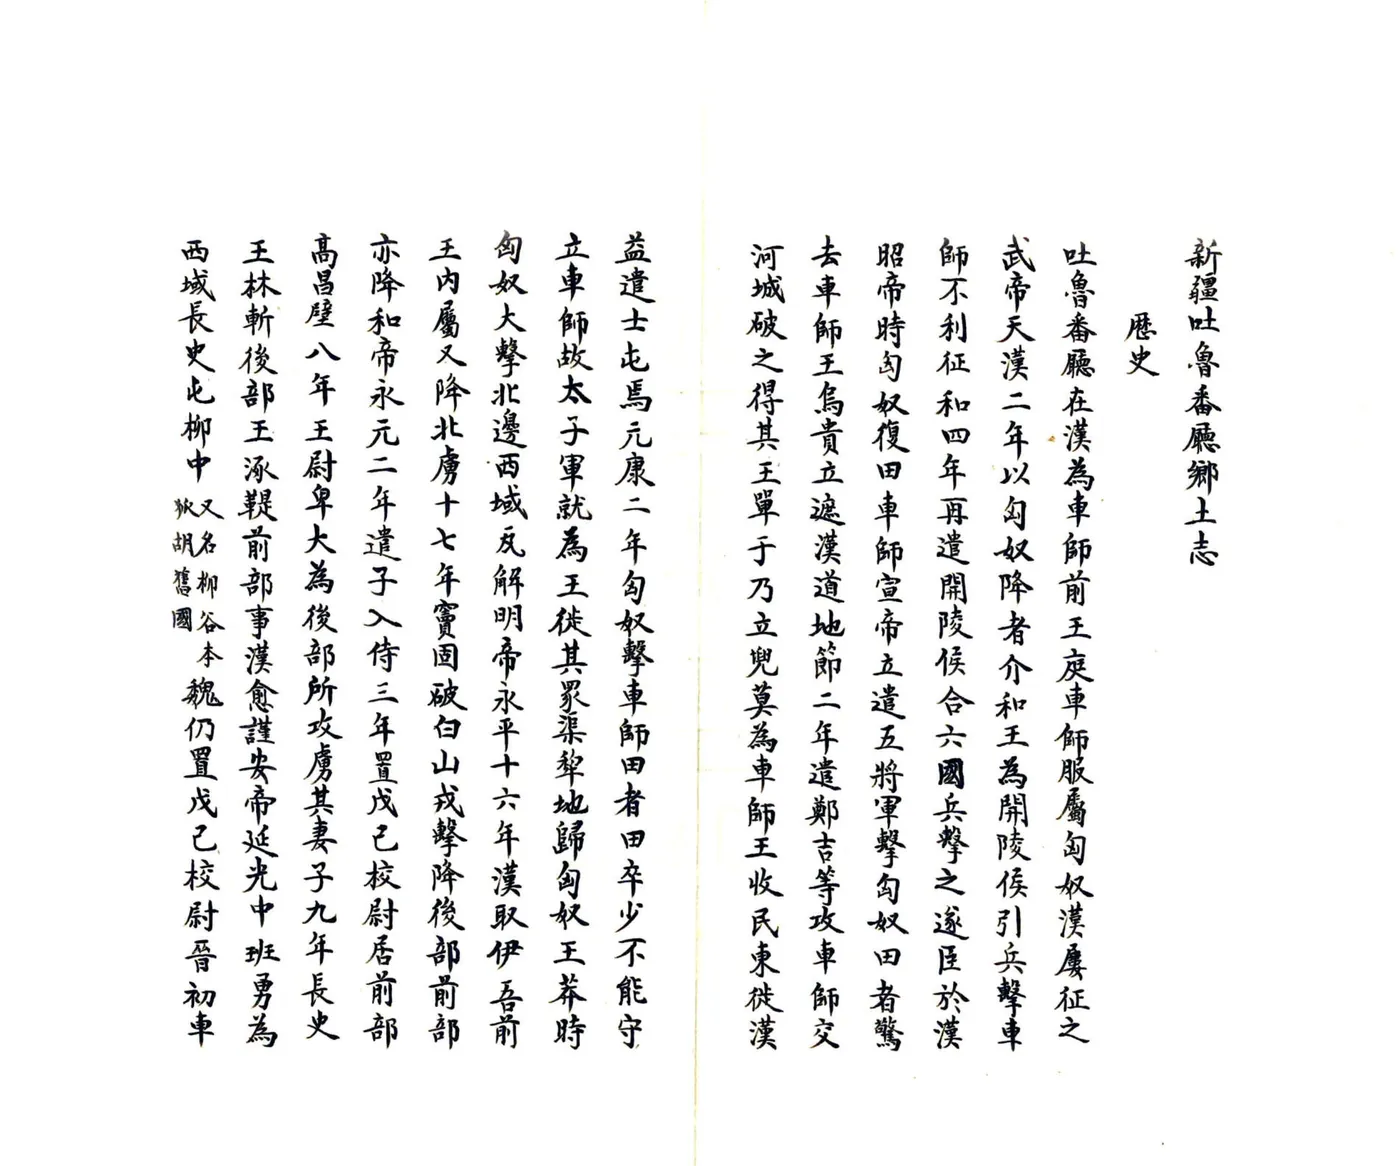 新疆吐魯番廳鄉土志
歷史
吐魯番廳在漢為車師前王庭車師服屬匈奴漢屢征之
武帝天漢二年以匈奴降者介和王為開陵侯引兵擊車
師不利征和四年再遣開陵侯合六國兵擊之遂臣於漢
昭帝時匈奴復田車師宣帝立遣五將軍擊匈奴田者驚
去車師王烏貴立遮漢道地節二年遣鄭吉等攻車師交
河城破之得其王單于乃立兜莫為車師王收民東徙漢
益遣士屯焉元康二年匈奴擊車師田者田卒少不能守
立車師故太子軍就為王徙其眾渠犂地歸匈奴王莽時
匈奴大擊北邊西域瓦解明帝永平十六年漢取伊吾前
王內屬又降北虜十七年竇固破白山戎擊降後部前部
亦降和帝永元二年遣子入侍三年置戊己校尉居前部
高昌壁八年王尉卑大為後部所攻虜其妻子九年長史
王林斬後部王涿鞮前部事漢愈謹安帝延光中班勇為
西域長史屯柳中又名柳谷本狐胡舊國魏仍置戊己校尉晉初車